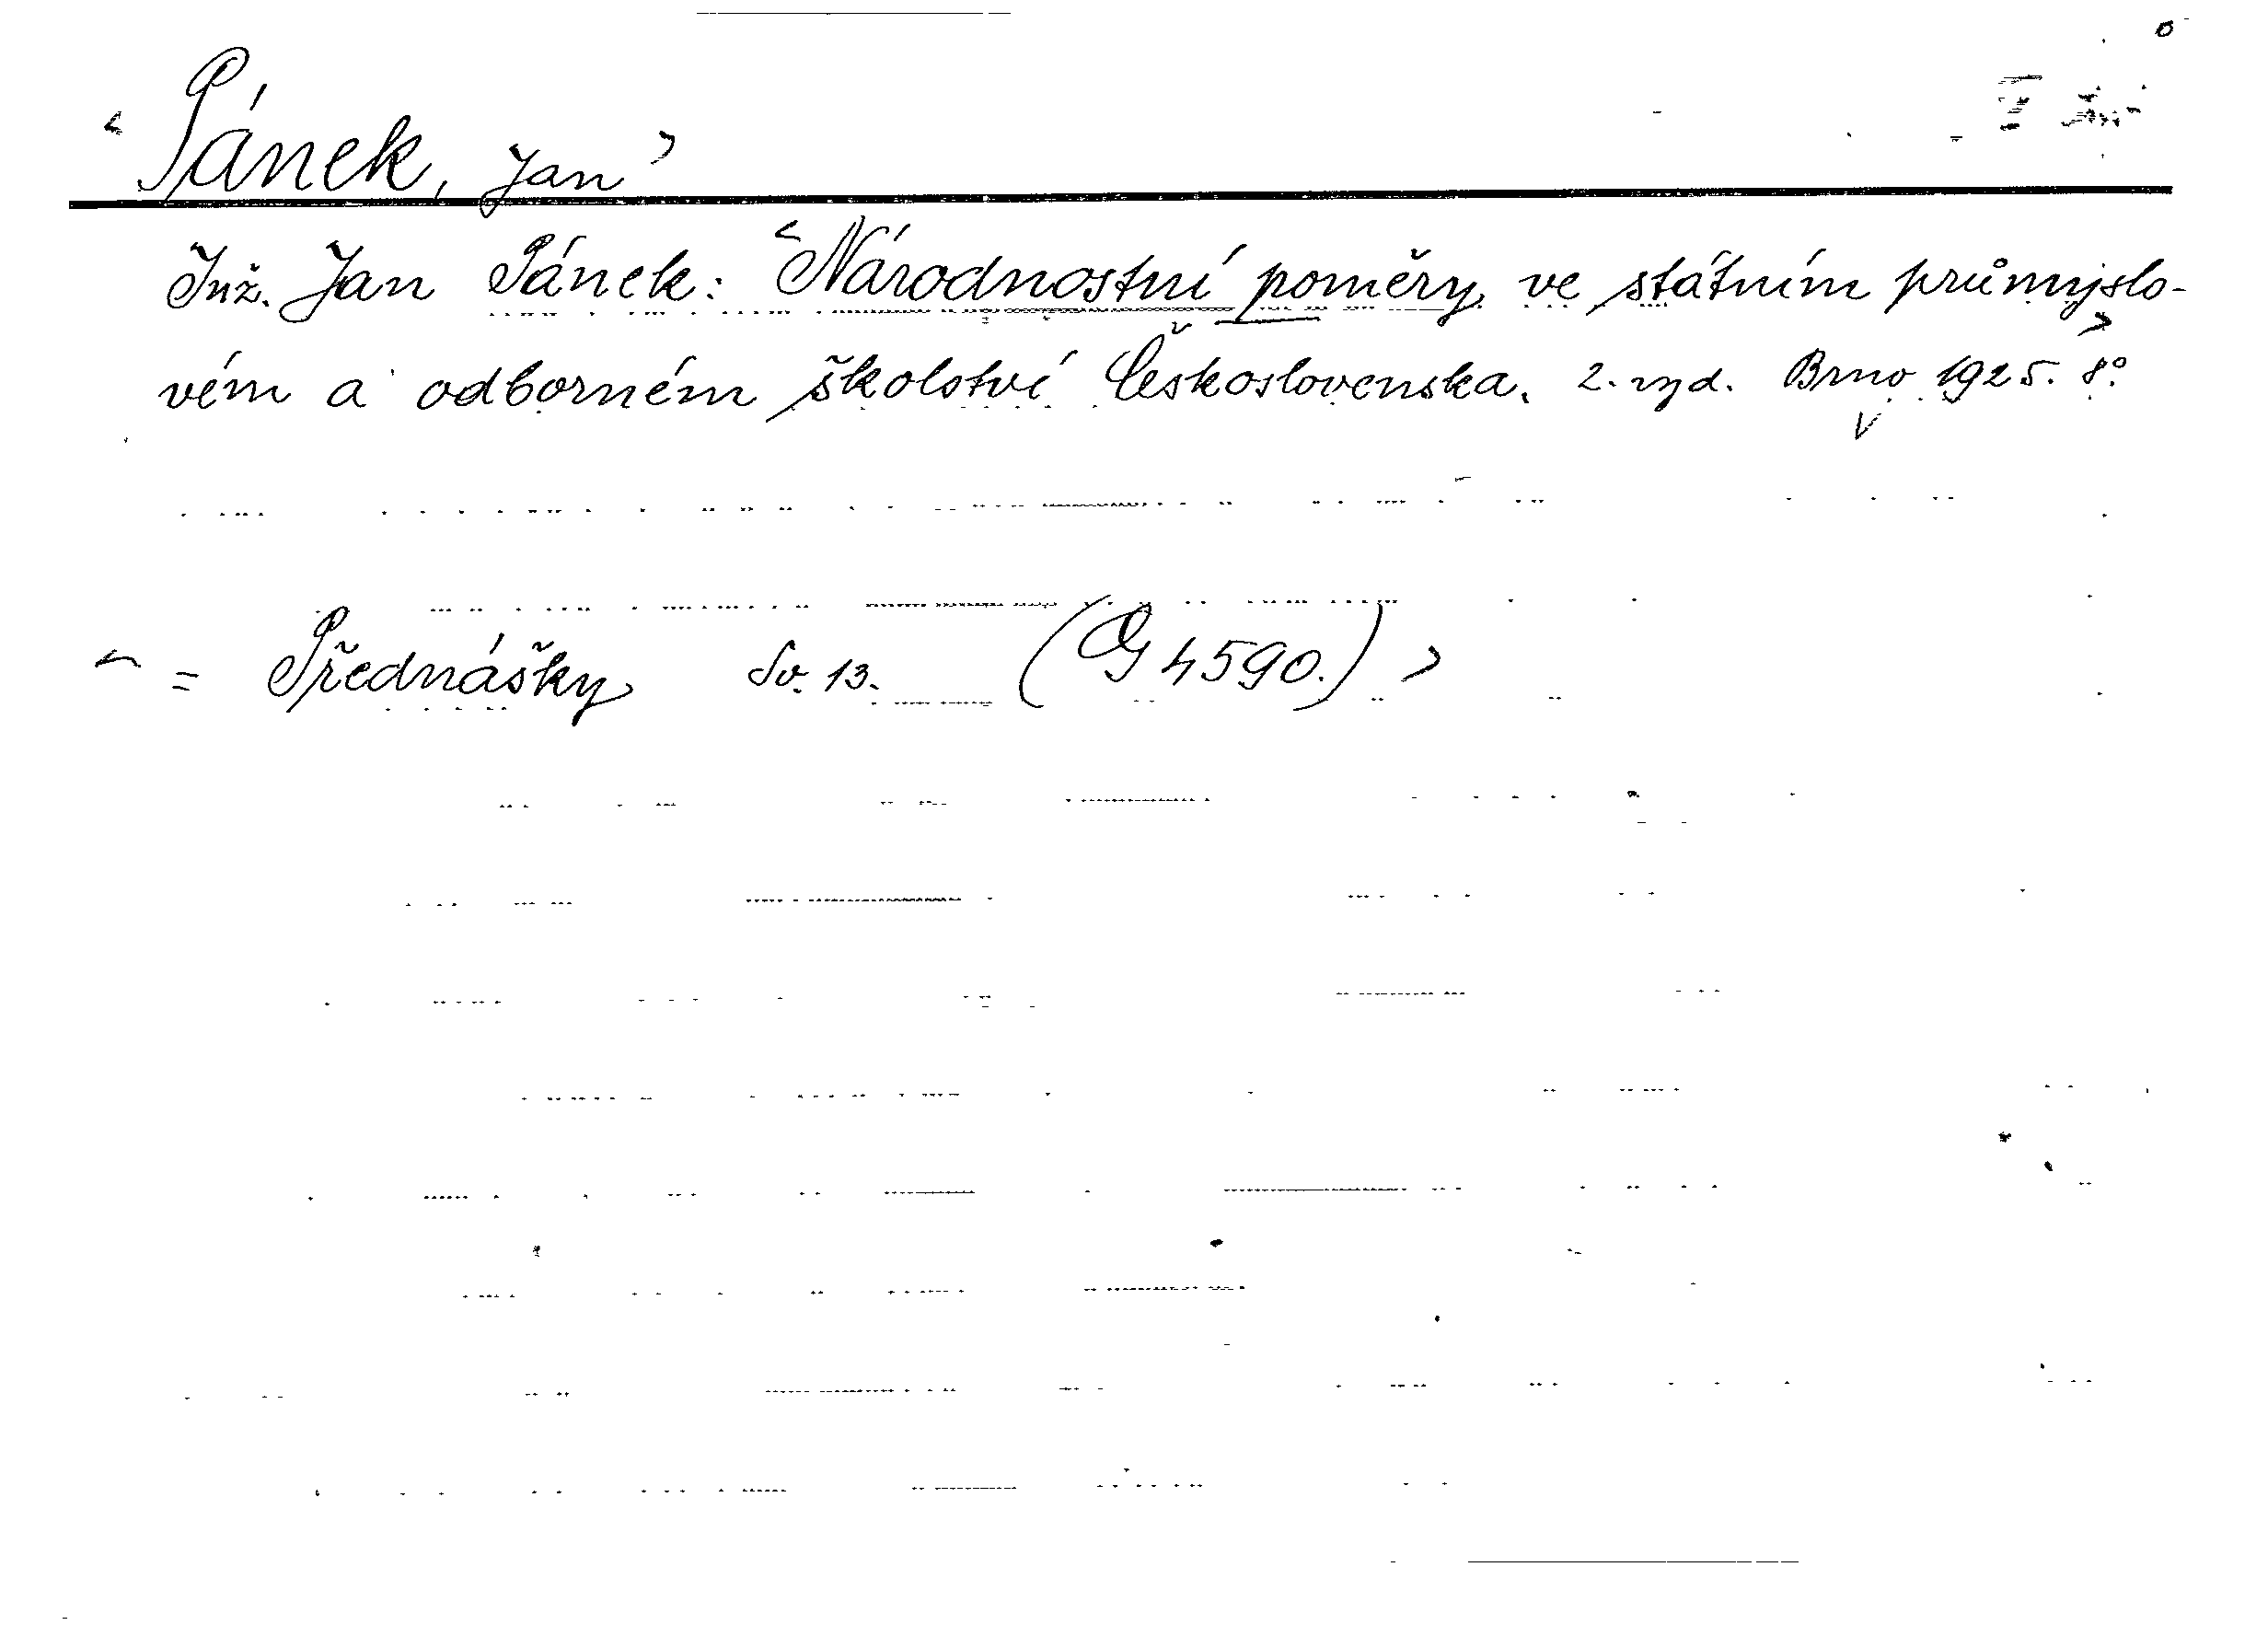 <Pánek, Jan>
Inž. Jan Pánek: <Národnostní poměry ve státním průmyslo-
vém a odborném školství Československa.> 2. vyd. Brno 1925. 8°.
< = Přednášky Sv. 13. (G 4590.) >